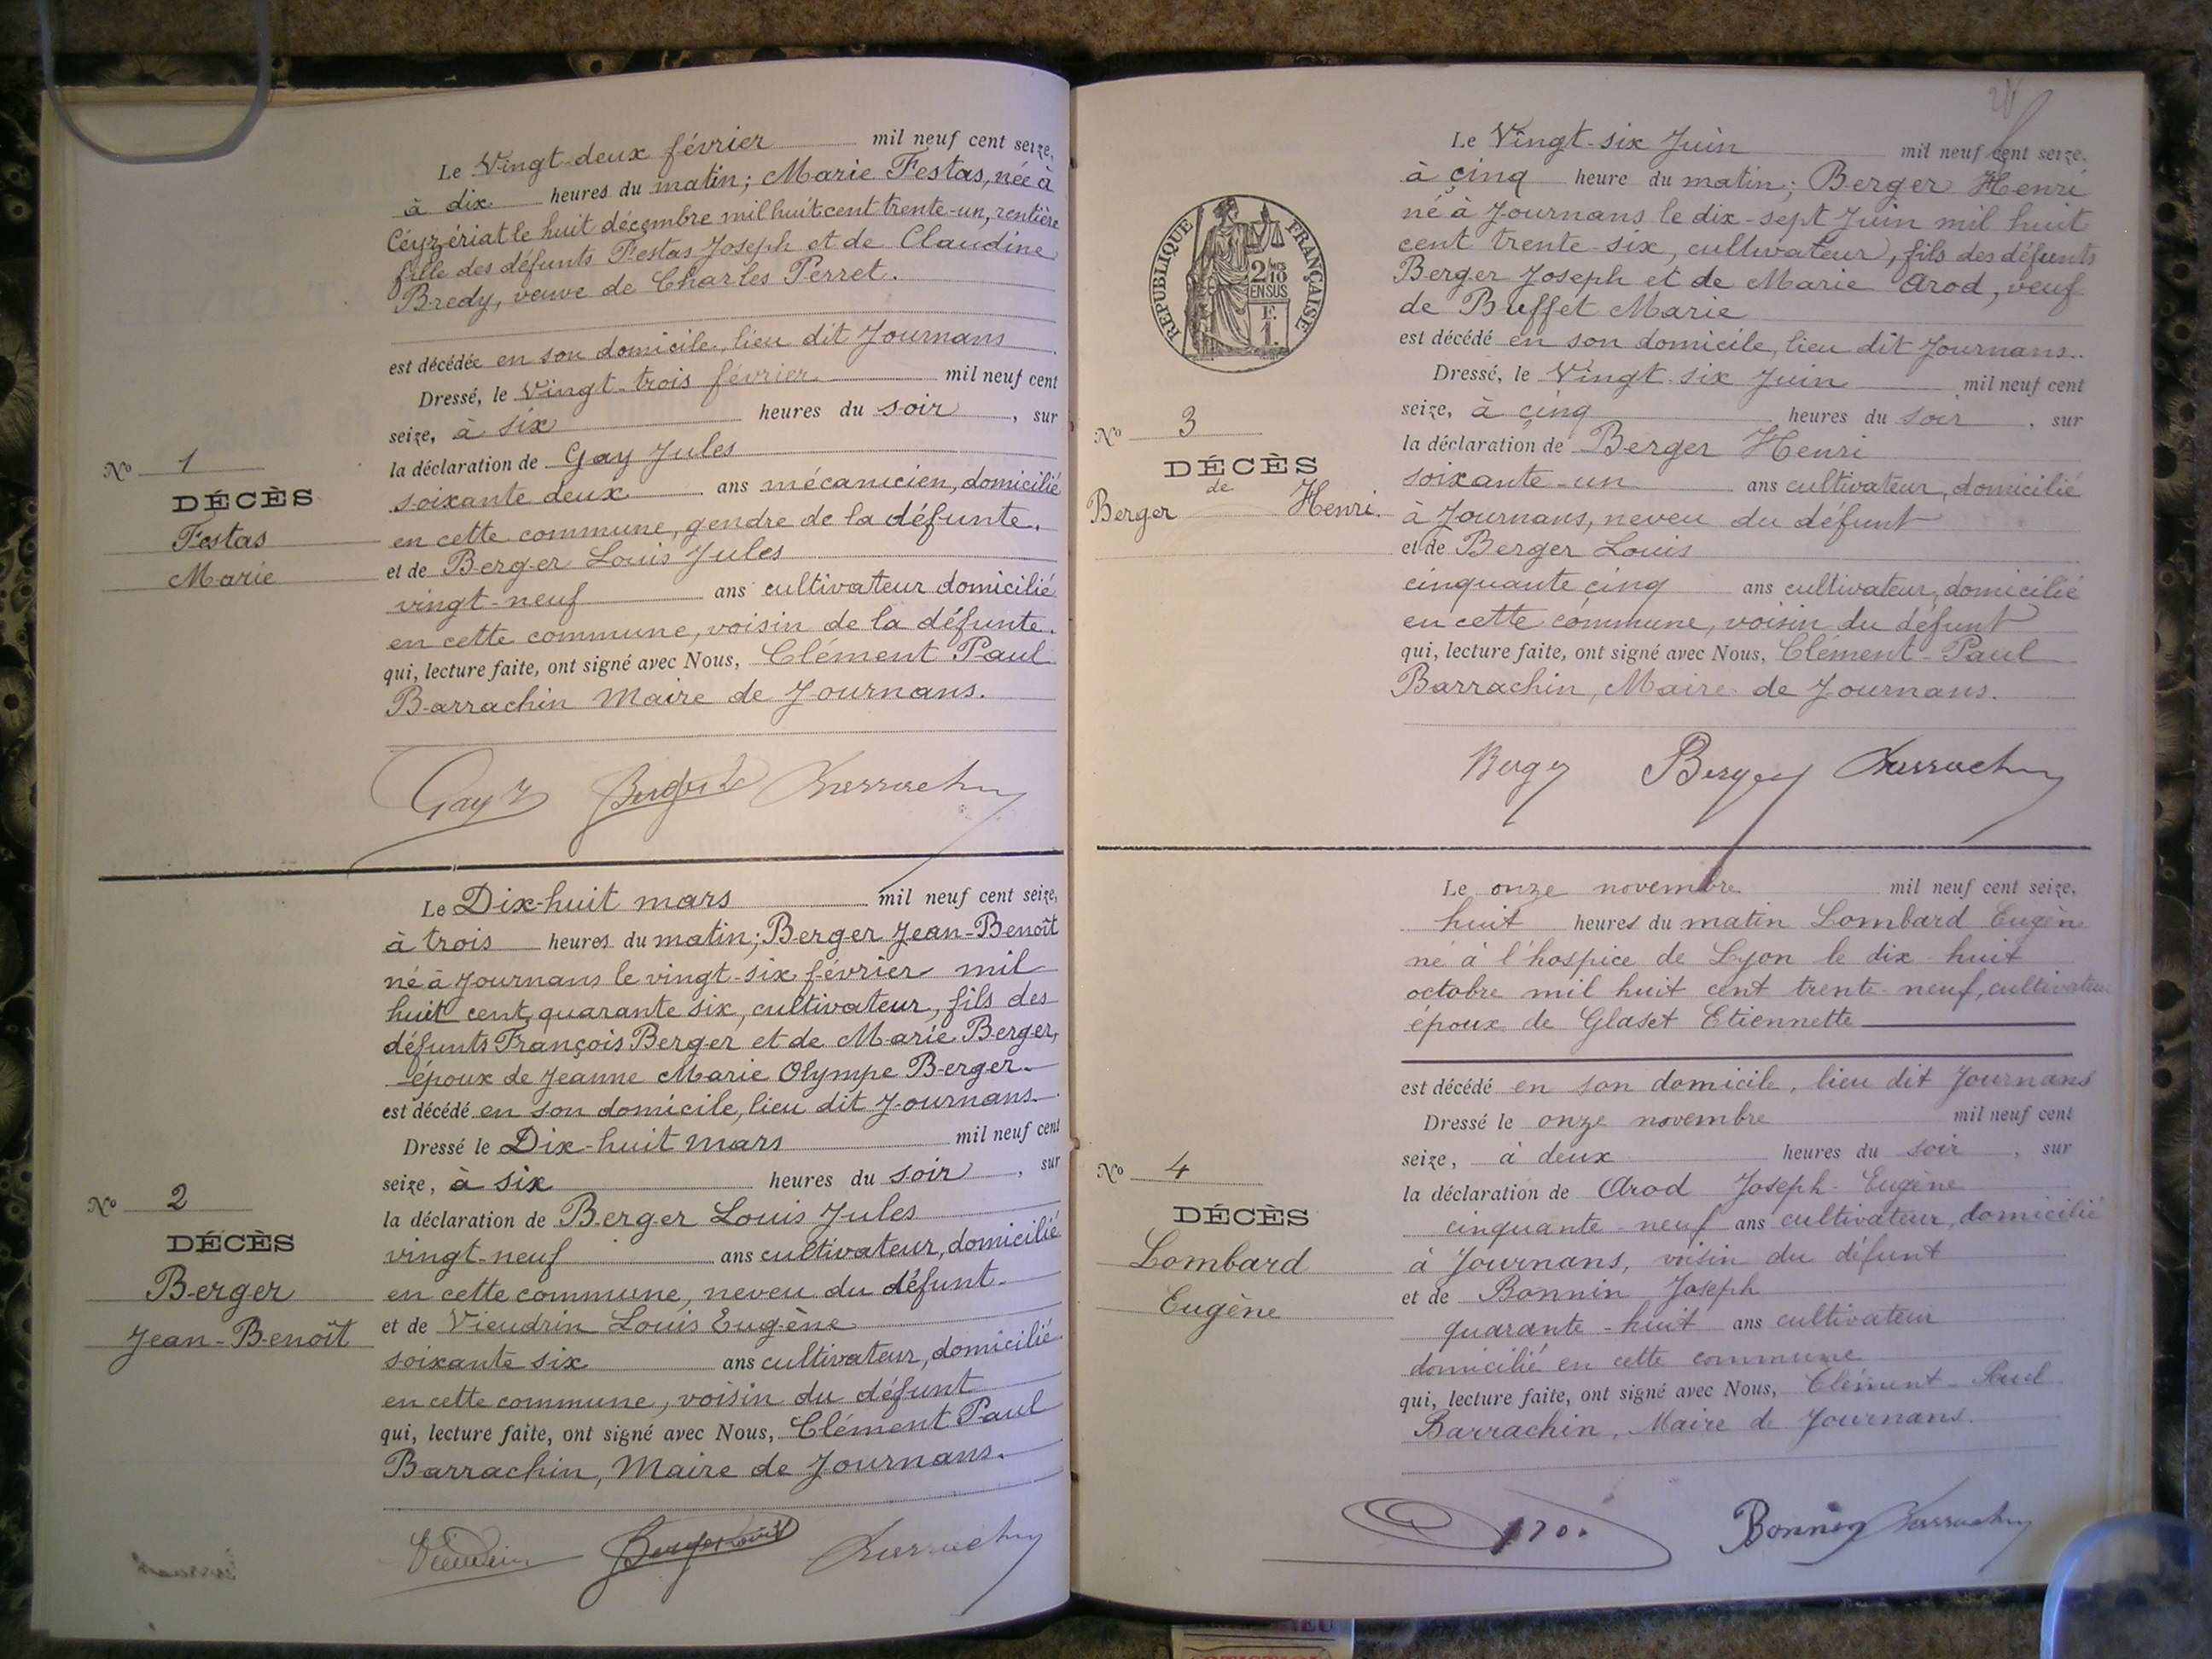 Le Vingt-deux février mil neuf cent seize,
à dix heures du matin; Marie Festas, née à
Céyzériat le huit décembre mil huit cent trente-un, rentière
fille des défunts Festas Joseph et de Claudine
Bredy, veuve de Charles Perret.
est décédée en son domicile, lieu dit Journans
Dressé, le Vingt-trois février mil neuf cent
seize, à six heures du soir, sur
la déclaration de Gay Jules
soixante deux ans mécanicien, domicilié
en cette commune, gendre de la défunte.
et de Berger Louis Jules
vingt-neuf ans cultivateur domicilié
en cette commune, voisin de la défunte.
qui, lecture faite, ont signé avec Nous, Clément Paul
Barrachin Maire de Journans.
No 1
DÉCÈS
Festas
Marie
Gay
Le Dix-huit mars mil neuf cent seize,
à trois heures du matin; Berger Jean-Benoît
né à Journans le vingt-six février mil
huit cent quarante six, cultivateur, fils des
défunts François Berger et de Marie Berger,
époux de Jeanne Marie Olympe Berger.
est décédé en son domicile, lieu dit Journans.
Dressé le Dix-huit mars mil neuf cent
seize, à six heures du soir, sur
la déclaration de Berger Louis Jules
vingt-neuf ans cultivateur, domicilié
en cette commune, neveu du défunt.
et de Vieudrin Louis Eugène
soixante six ans cultivateur, domicilié
en cette commune, voisin du défunt
qui, lecture faite, ont signé avec Nous, Clément Paul
Barrachin, Maire de Journans.
No 2
DÉCÈS
Berger
Jean-Benoît
RÉPUBLIQUE FRANÇAISE
2/10
EN SUS
F.
1.
Le Vingt-six Juin mil neuf cent seize.
à cinq heure du matin; Berger Henri
né à Journans le dix-sept Juin mil huit
cent trente-six, cultivateur, fils des défunts
Berger Joseph et de Marie Arod, veuf
de Buffet Marie
est décédé en son domicile, lieu dit Journans.
Dressé, le Vingt-six Juin mil neuf cent
seize, à cinq heures du soir, sur
la déclaration de Berger Henri
soixante-un ans cultivateur, domicilié
à Journans, neveu du défunt
et de Berger Louis
cinquante cinq ans cultivateur, domicilié
en cette commune, voisin du défunt
qui, lecture faite, ont signé avec Nous, Clément-Paul
Barrachin, Maire de Journans.
No 3
DÉCÈS
de
Berger Henri.
Berger
Le onze novembre mil neuf cent seize,
huit heures du matin Lombard Eugène
né à l'hospice de Lyon le dix-huit
octobre mil huit cent trente-neuf, cultivateur
époux de Glaset Etiennette
est décédé en son domicile, lieu dit Journans
Dressé le onze novembre mil neuf cent
seize, à deux heures du soir, sur
la déclaration de Arod Joseph-Eugène
cinquante-neuf ans cultivateur, domicilié
à Journans, voisin du défunt
et de Bonnin Joseph
quarante-huit ans cultivateur
domicilié en cette commune
qui, lecture faite, ont signé avec Nous, Clément-Paul
Barrachin, Maire de Journans.
No 4
DÉCÈS
Lombard
Eugène
Bonnin